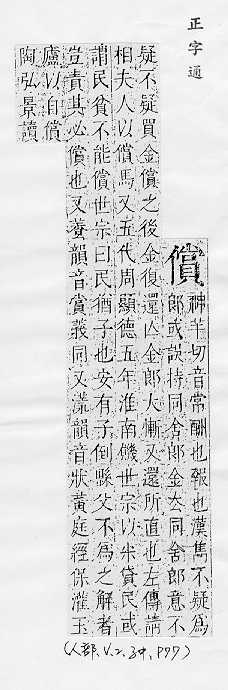 正字通
償
裨羊切音常酬也報也漢雋不疑爲
郎或誤持同舍郎金去同舍郎意不
疑不疑買金償之後金復還亾金郎大慚又還所直也左傳請
相夫人以償馬又五代周顯德五年淮南饑世宗以米貸民或
謂民貧不能償世宗曰民猶子也安有子倒縣父不爲之解者
豈責其必償也又養韻音賞義同又漾韻音狀黃庭經保灌玉
廬以自償
陶弘景讀
(人部、V.2、34、P77)